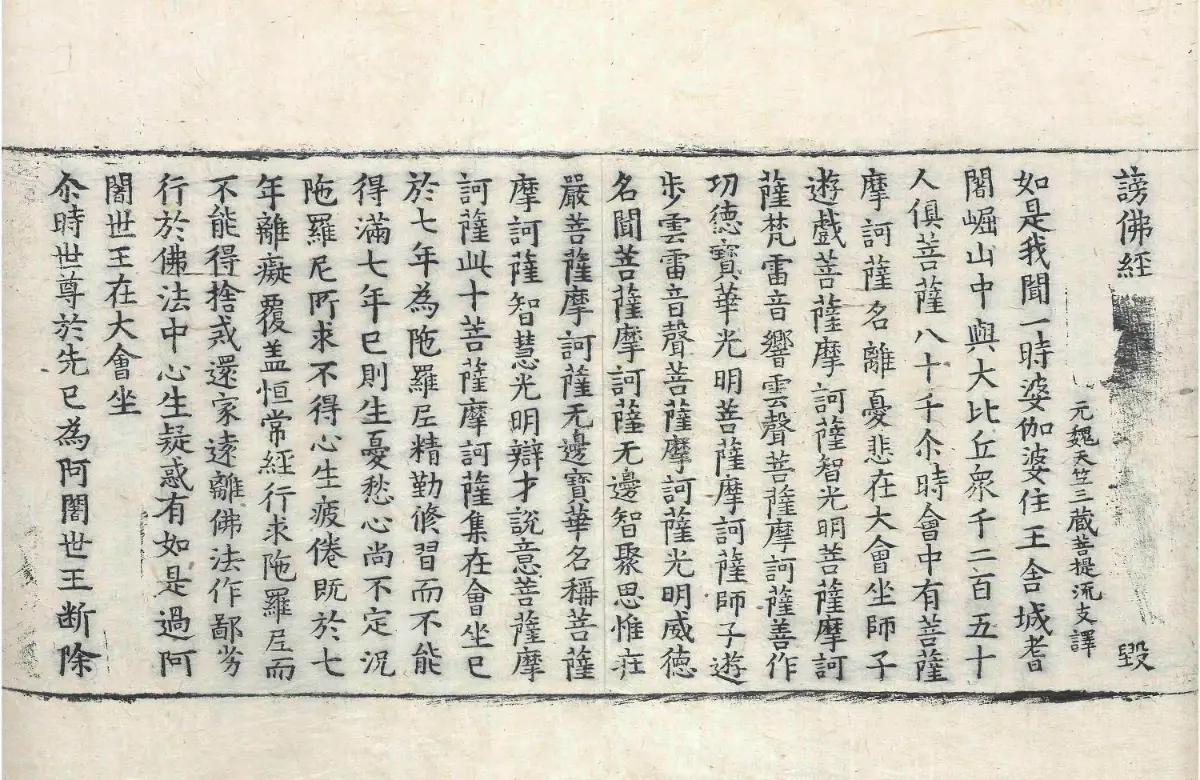 謗佛經 毀
元魏天竺三蔵菩提流支譯
如是我聞一時婆伽婆住王舍城耆
闍崛山中與大比丘衆千二百五十
人俱菩薩八十千尒時會中有菩薩
摩訶薩名離憂悲在大會坐師子
遊戲菩薩摩訶薩智光明菩薩摩訶
薩梵雷音響雲聲菩薩摩訶薩善作
功德寶華光明菩薩摩訶薩師子遊
步雲雷音聲菩薩摩訶薩光明威德
名聞菩薩摩訶薩无邊智聚思惟莊
嚴菩薩摩訶薩无邊寶華名稱菩薩
摩訶薩智慧光明辯才說意菩薩摩
訶薩此十菩薩摩訶薩集在會坐已
於七年為陁羅尼精勤修習而不能
得滿七年已則生憂愁心尚不定況
陁羅尼所求不得心生疲倦既於七
年離癡覆蓋恒常經行求陁羅尼而
不能得捨戒還家遠離佛法作鄙劣
行於佛法中心生疑惑有如是過阿
闍世王在大會坐
尒時世尊於先已為阿闍世王斷除